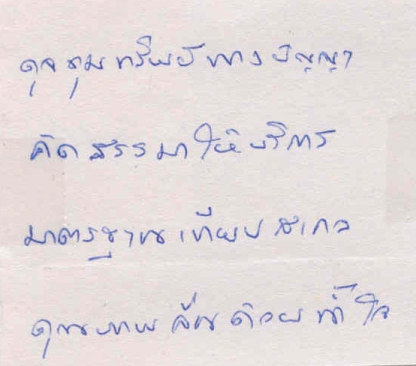 ดุจขุมทรัพย์ทางปัญญา
คัดสรรมาให้บริการ
มาตรฐานเทียบสากล
คุณภาพล้นด้วยน้ำใจ